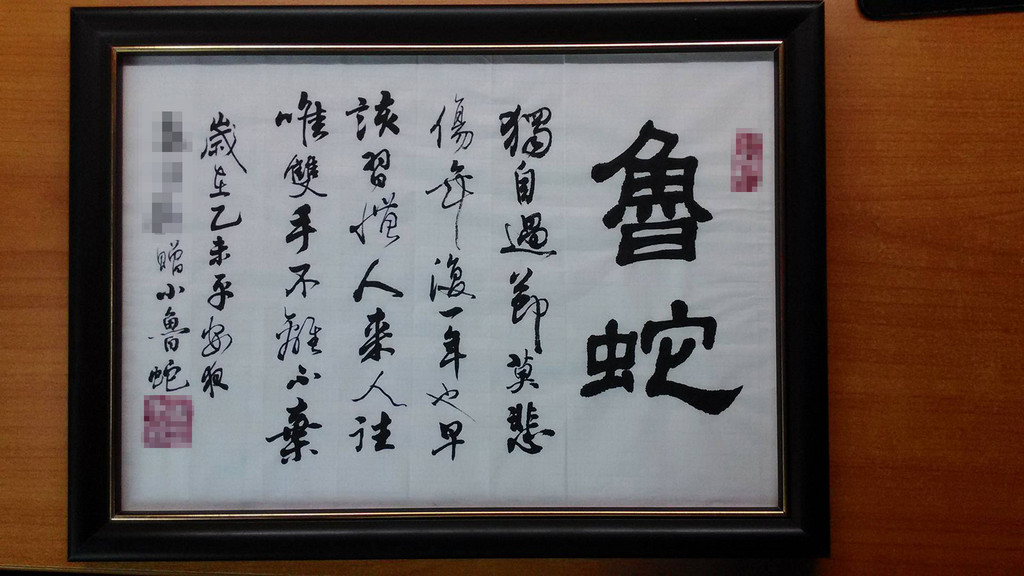 魯蛇
獨自過節莫悲
傷年年復一年也早
該習慣人來人往
唯雙手不離不棄
歲在乙未平安夜
贈小魯蛇